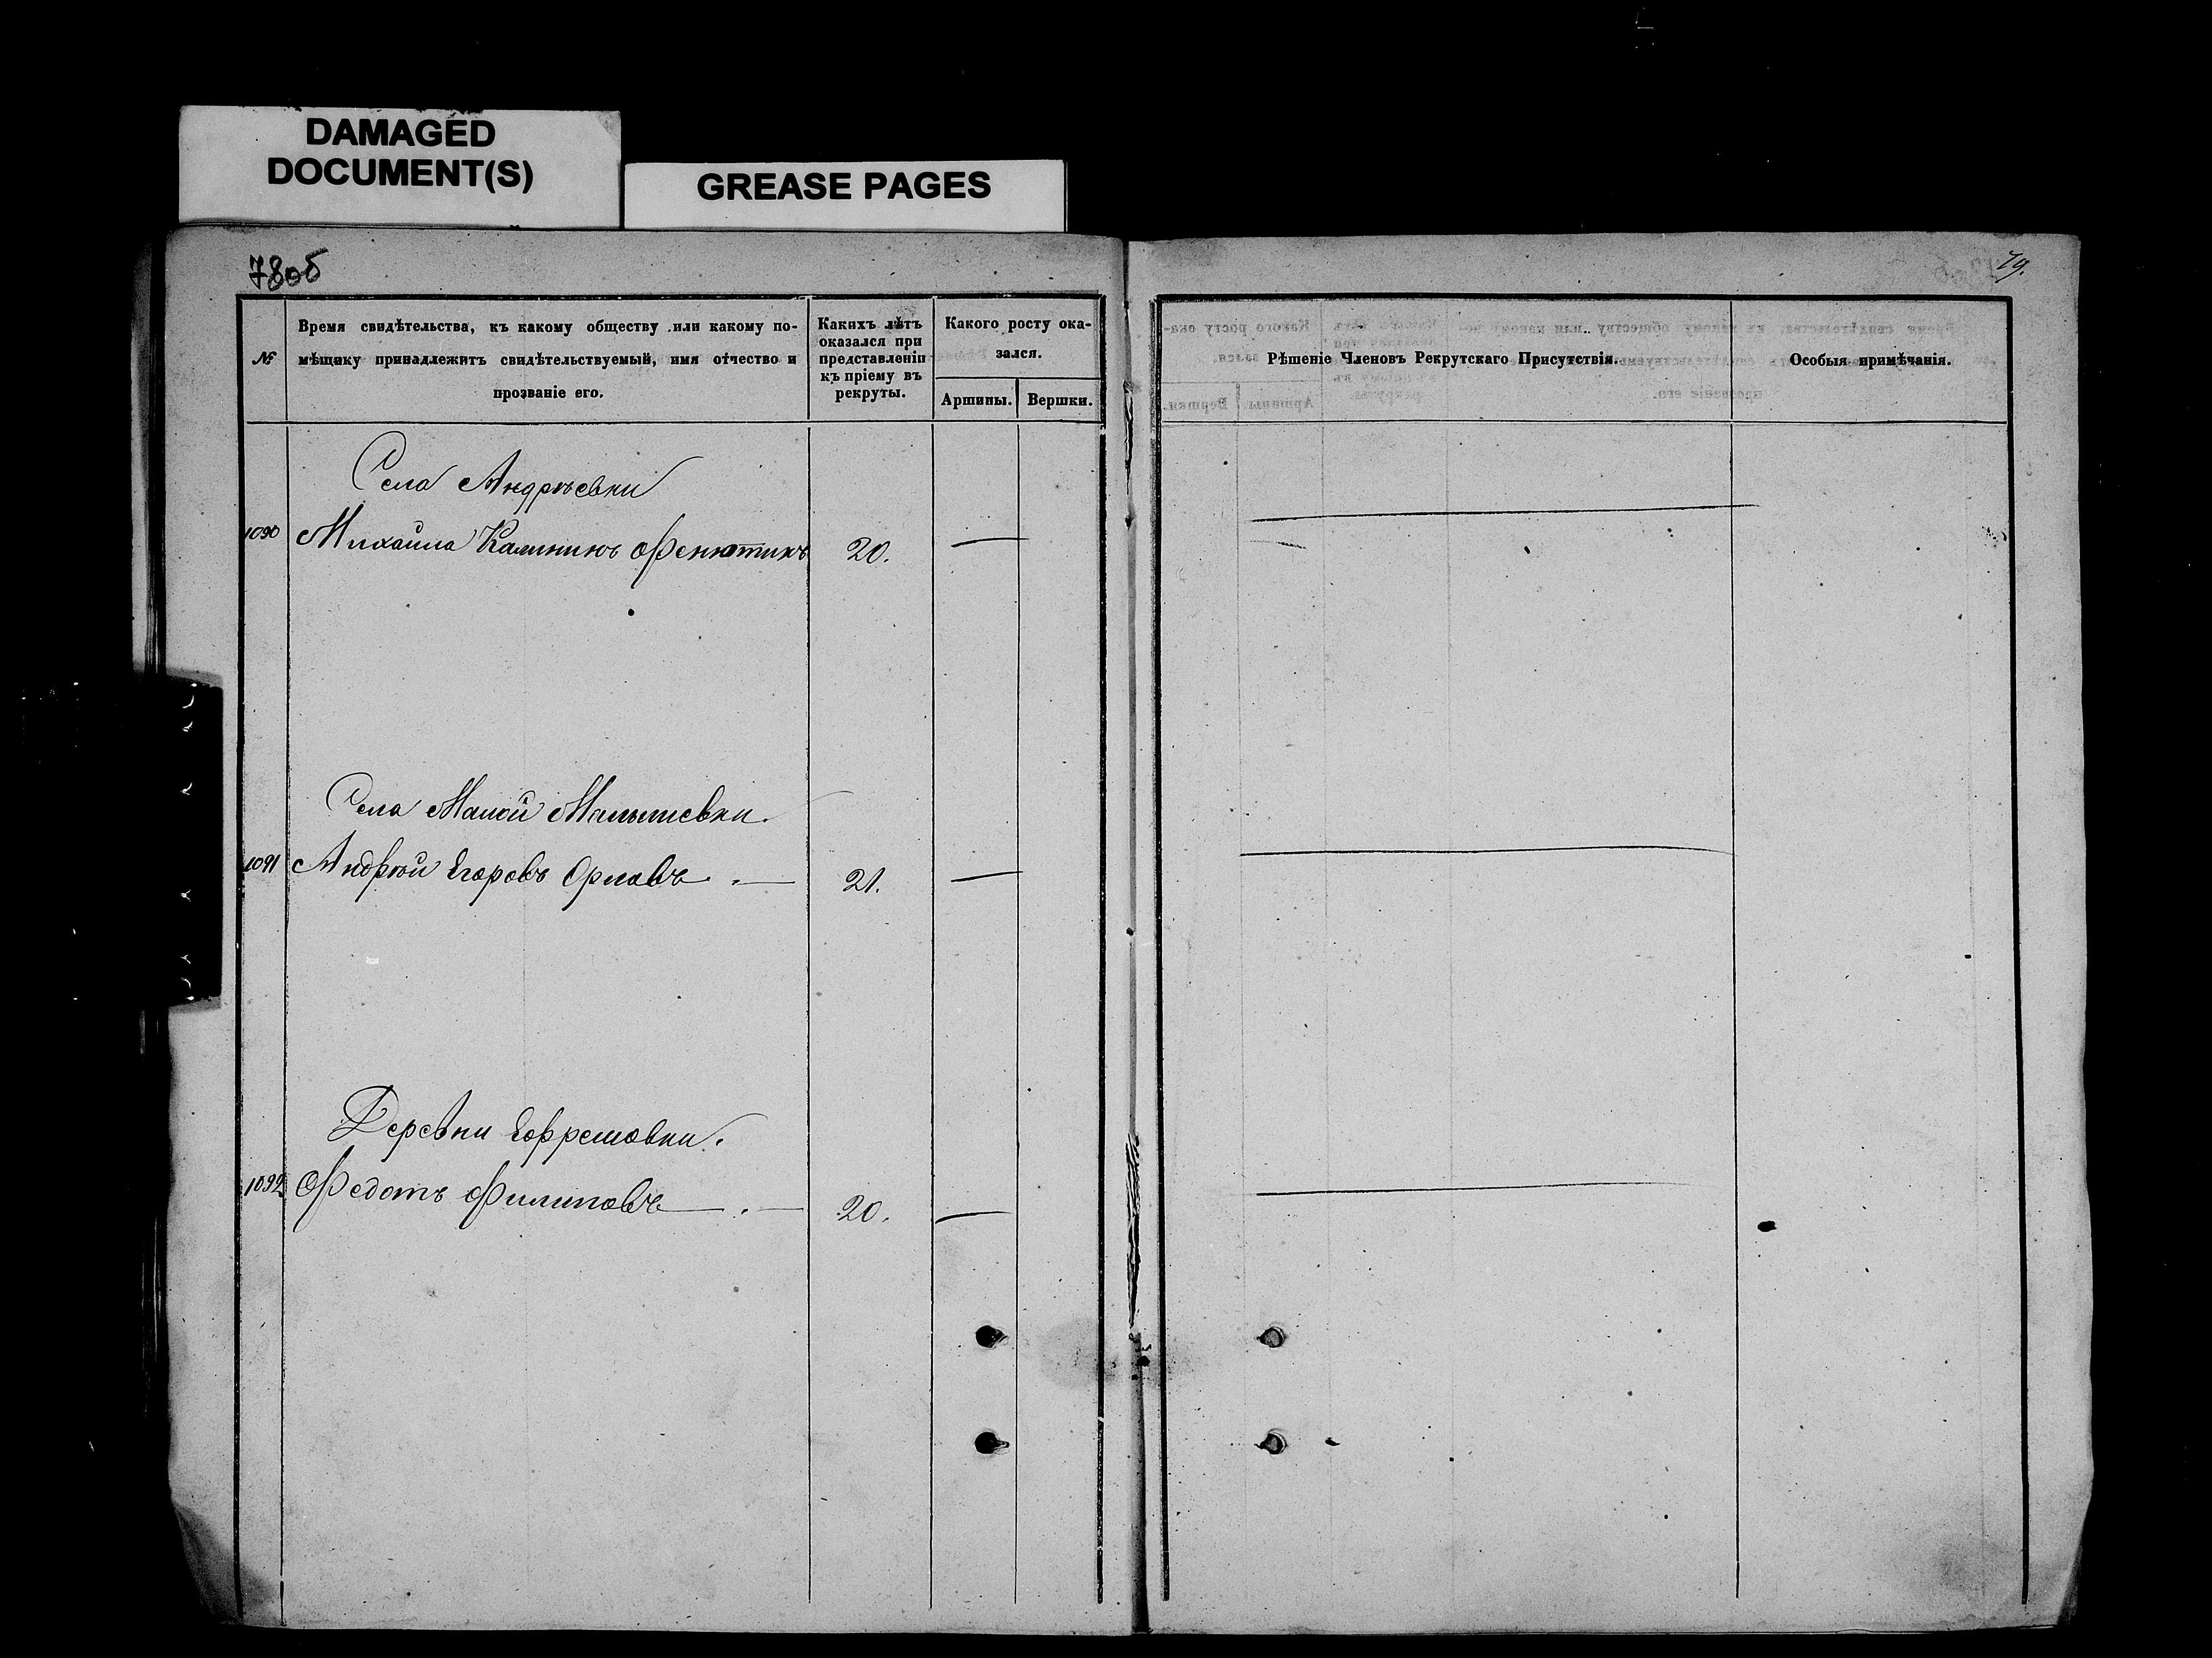 DAMAGED
DOCUMENT(S)
GREASE PAGES
78об
№
Время свидѣтельства, къ какому обществу или какому по-
мѣщику принадлежитъ свидѣтельствуемый, имя отчество и
прозваніе его.
Какихъ лѣтъ
оказался при
представленіи
къ пріему въ
рекруты.
Какого росту ока-
зался.
Аршины. Вершки.
Села Андреевки
1090 Михаила Калининъ Фенютинъ 20. —
Села Малой Малышевки.
1091 Андрей Егоровъ Орловъ — 21. —
Деревни Ефремовки.
1092 Федотъ Филиповъ — 20. —
79.
Рѣшеніе Членовъ Рекрутскаго Присутствія.
Особыя примѣчанія.